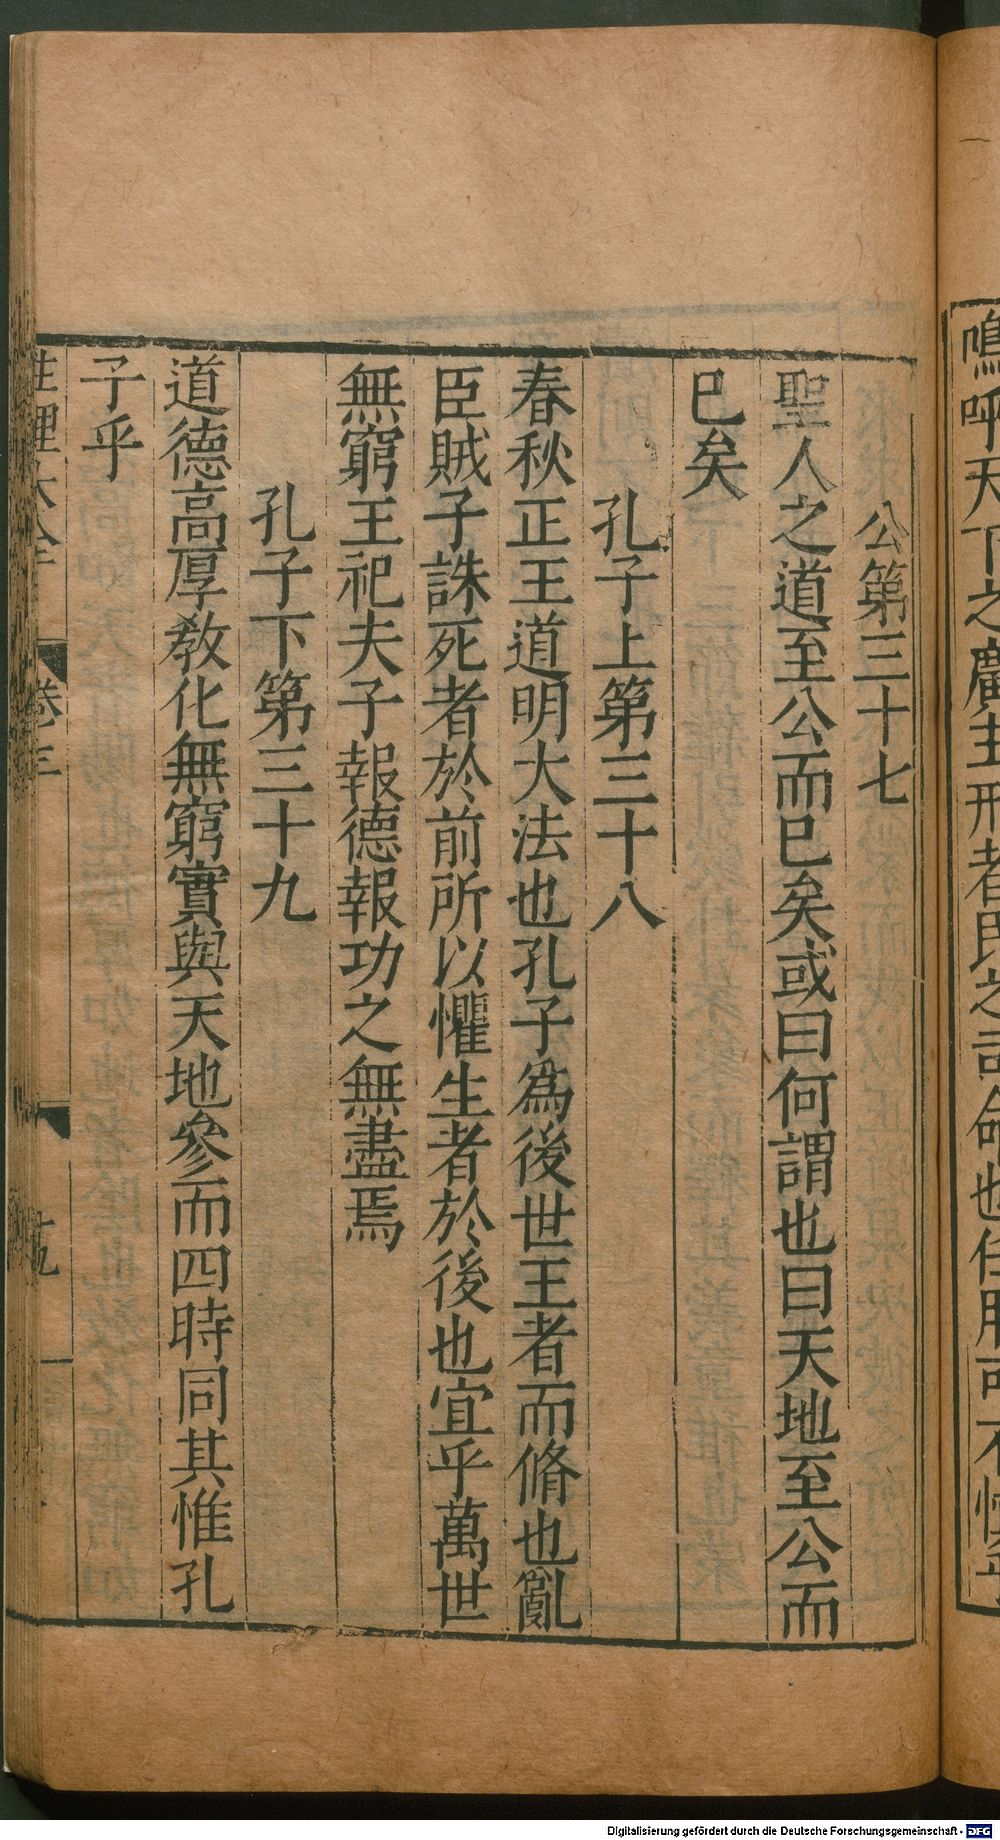 鳴呼天下之廣主刑者民之司命也任用可不慎乎
公第三十七
聖人之道至公而已矣或曰何謂也曰天地至公而
已矣
孔子上第三十八
春秋正王道明大法也孔子為後世王者而脩也亂
臣賊子誅死者於前所以懼生者於後也宜乎萬世
無窮王祀夫子報德報功之無盡焉
孔子下第三十九
道德高厚教化無窮實與天地參而四時同其惟孔
子乎
性理大全 卷三
Digitalisierung gefördert durch die Deutsche Forschungsgemeinschaft - DFG